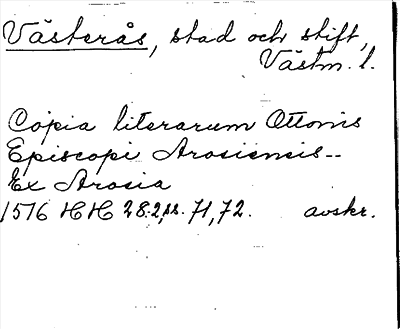 Västerås, stad och stift,
Västm. l.
Copia literarum Ottonis
Episcopi Arosiensis--
Ex Arosia
1516 HH 28:2, ss. 71, 72. avskr.